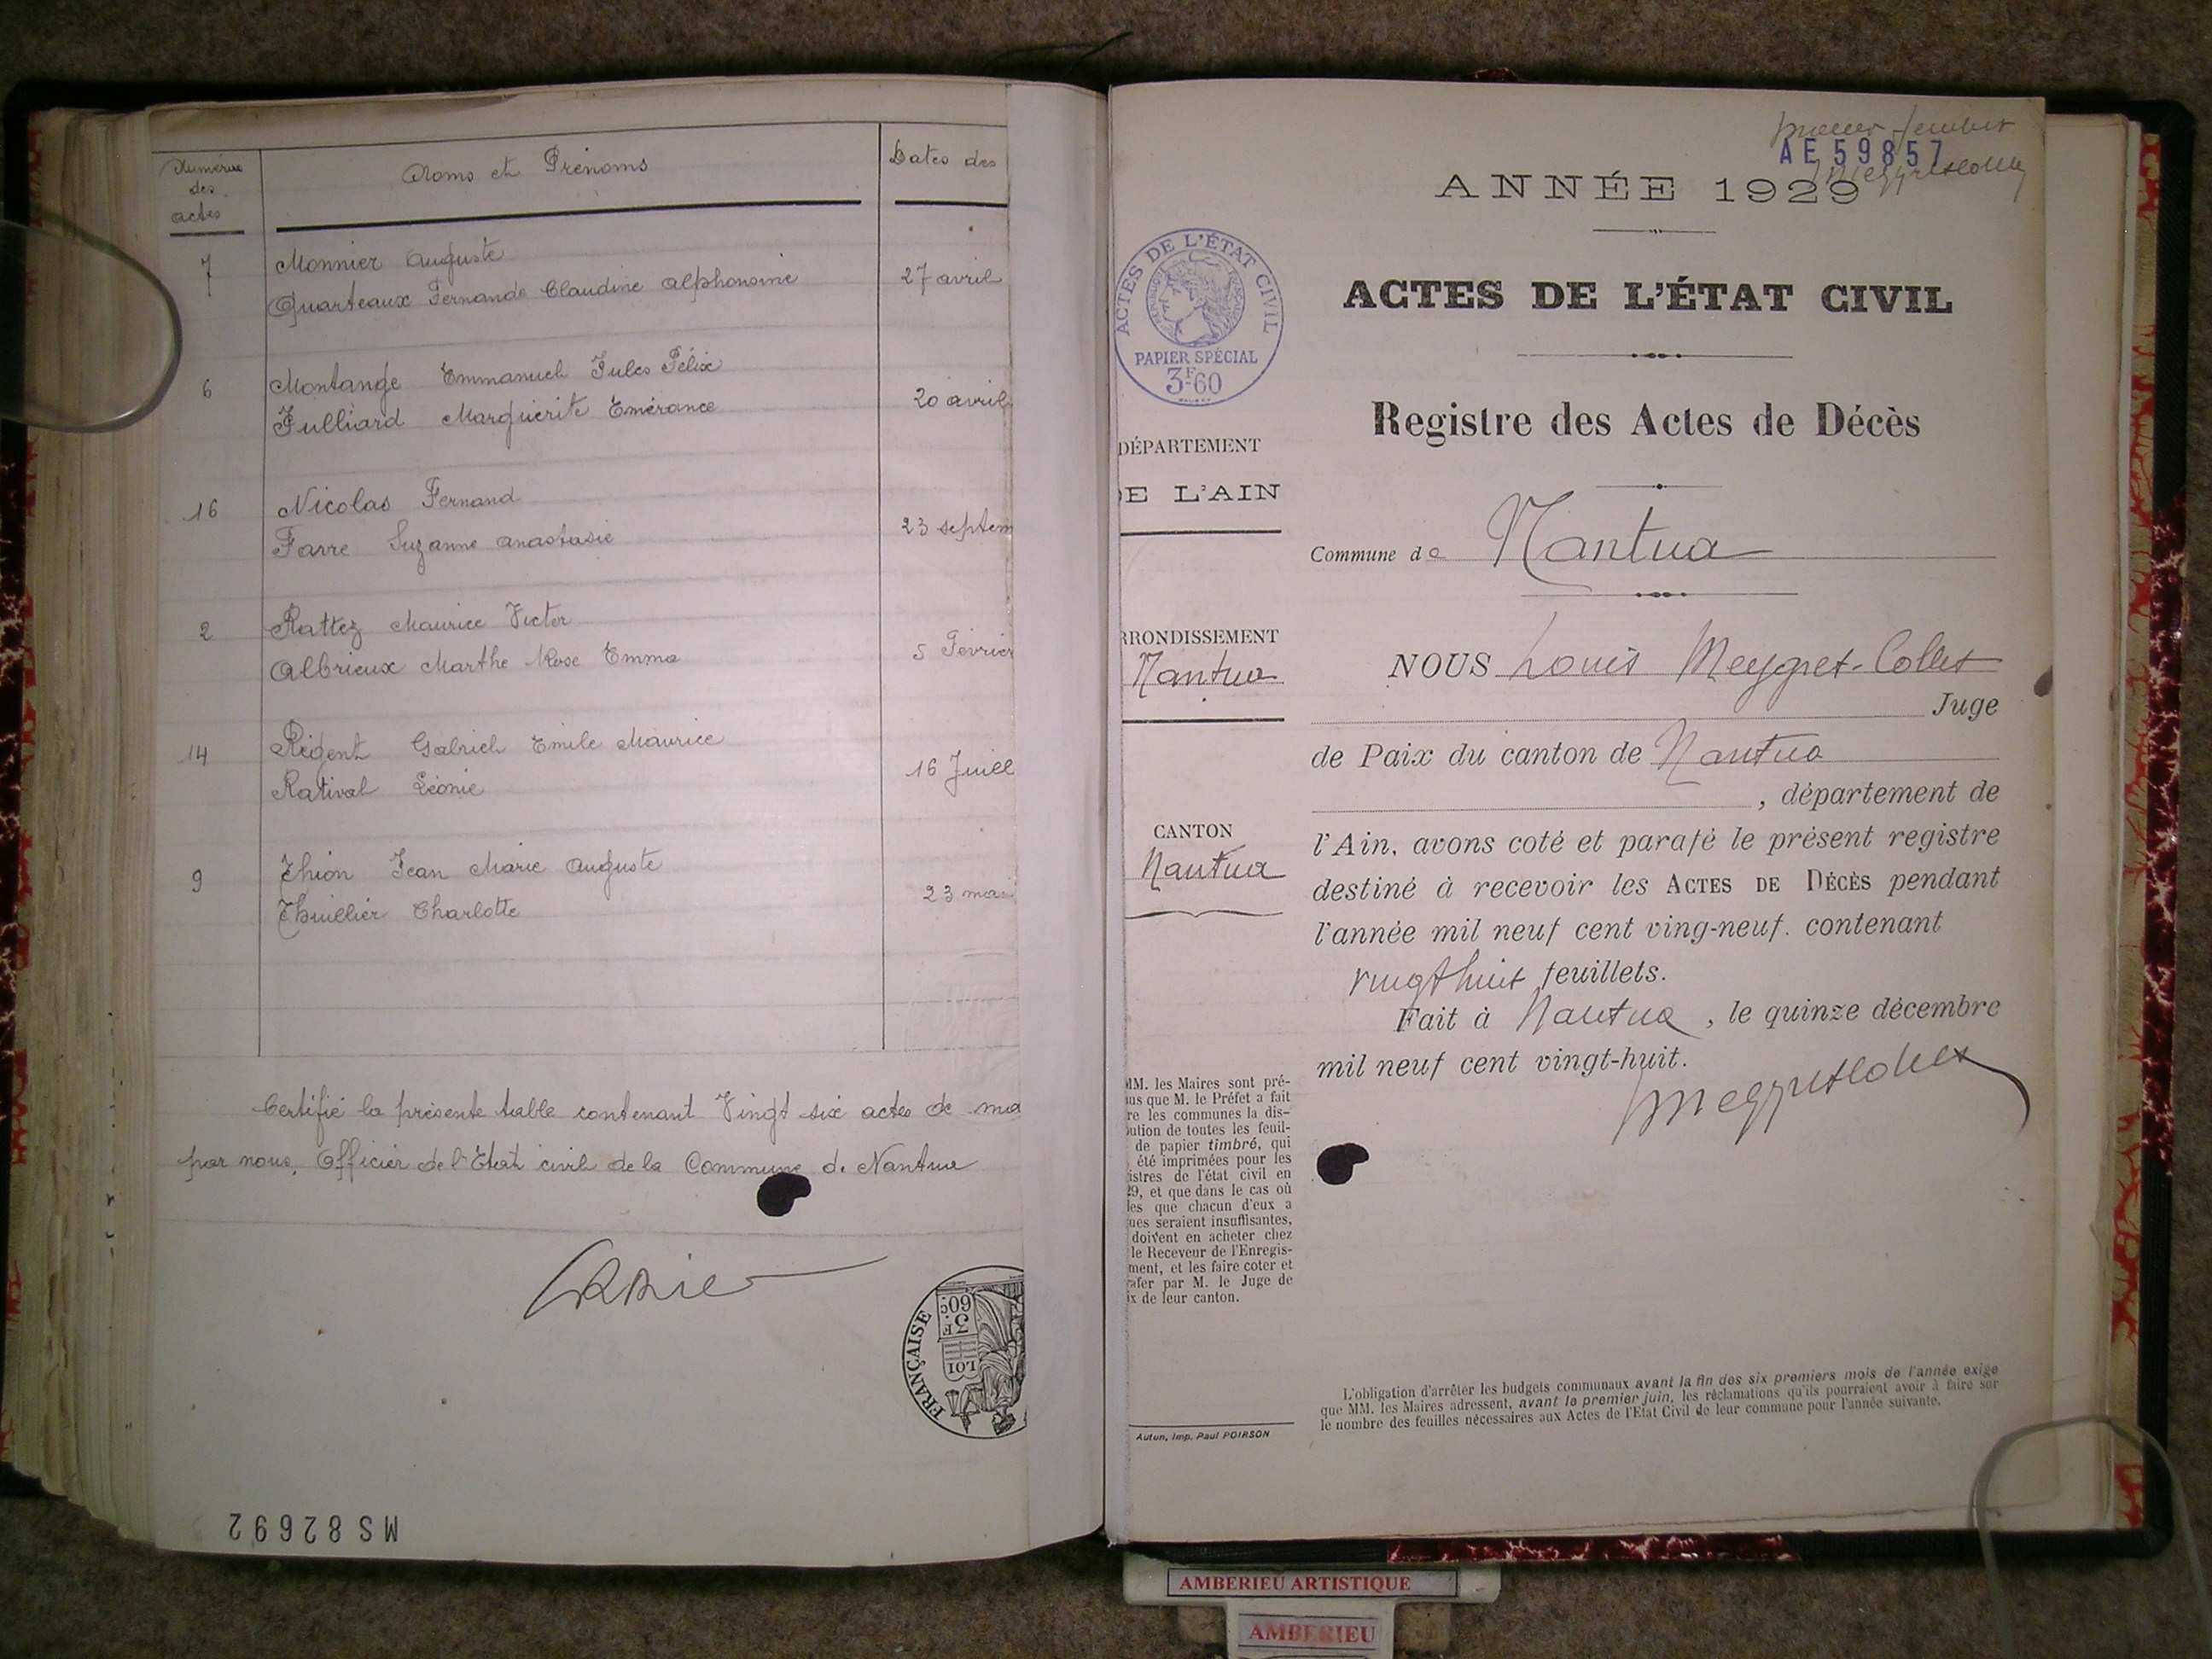 Numéros
des
actes
Noms et Prénoms
Dates des
7
Monnier Auguste
Quarteaux Fernande Claudine Alphonsine
27 avril
6
Montange Emmanuel Jules Félix
Julliard Marguerite Emérance
20 avril
16
Nicolas Fernand
Farre Suzanne Anastasie
23 septem
2
Rattez Maurice Victor
Albrieux Marthe Rose Emma
5 Février
14
Régent Gabriel Emile Maurice
Rativat Léonie
16 Juill
9
Thion Jean Marie Auguste
Thuillier Charlotte
23 mai
Certifié la présente table contenant Vingt six actes de ma
par nous, Officier de l'Etat civil de la Commune de Nantua
FRANÇAISE
3F.
60c
LOI
MS82692
premier feuillet
AE 59857
ANNÉE 1929
ACTES DE L'ÉTAT CIVIL
PAPIER SPÉCIAL
3F60
ACTES DE L'ÉTAT CIVIL
Registre des Actes de Décès
DÉPARTEMENT
DE L'AIN
Commune de Nantua
RRONDISSEMENT
Nantua
NOUS Louis Meygret-Collet
Juge
de Paix du canton de Nantua
, département de
CANTON
Nantua
l'Ain, avons coté et parafé le présent registre
destiné à recevoir les ACTES DE DÉCÈS pendant
l'année mil neuf cent ving-neuf. contenant
vingt huit feuillets.
Fait à Nantua, le quinze décembre
mil neuf cent vingt-huit.
Meygretcollet
MM. les Maires sont pré-
us que M. le Préfet a fait
re les communes la dis-
ution de toutes les feuil-
de papier timbré, qui
été imprimées pour les
istres de l'état civil en
29, et que dans le cas où
les que chacun d'eux a
ues seraient insuffisantes,
doivent en acheter chez
le Receveur de l'Enregis-
ment, et les faire coter et
rafer par M. le Juge de
ix de leur canton.
L'obligation d'arrêter les budgets communaux avant la fin des six premiers mois de l'année exige
que MM. les Maires adressent, avant le premier juin, les réclamations qu'ils pourraient avoir à faire sur
le nombre des feuilles nécessaires aux Actes de l'Etat Civil de leur commune pour l'année suivante.
Autun, Imp. Paul POIRSON
AMBERIEU ARTISTIQUE
AMBERIEU